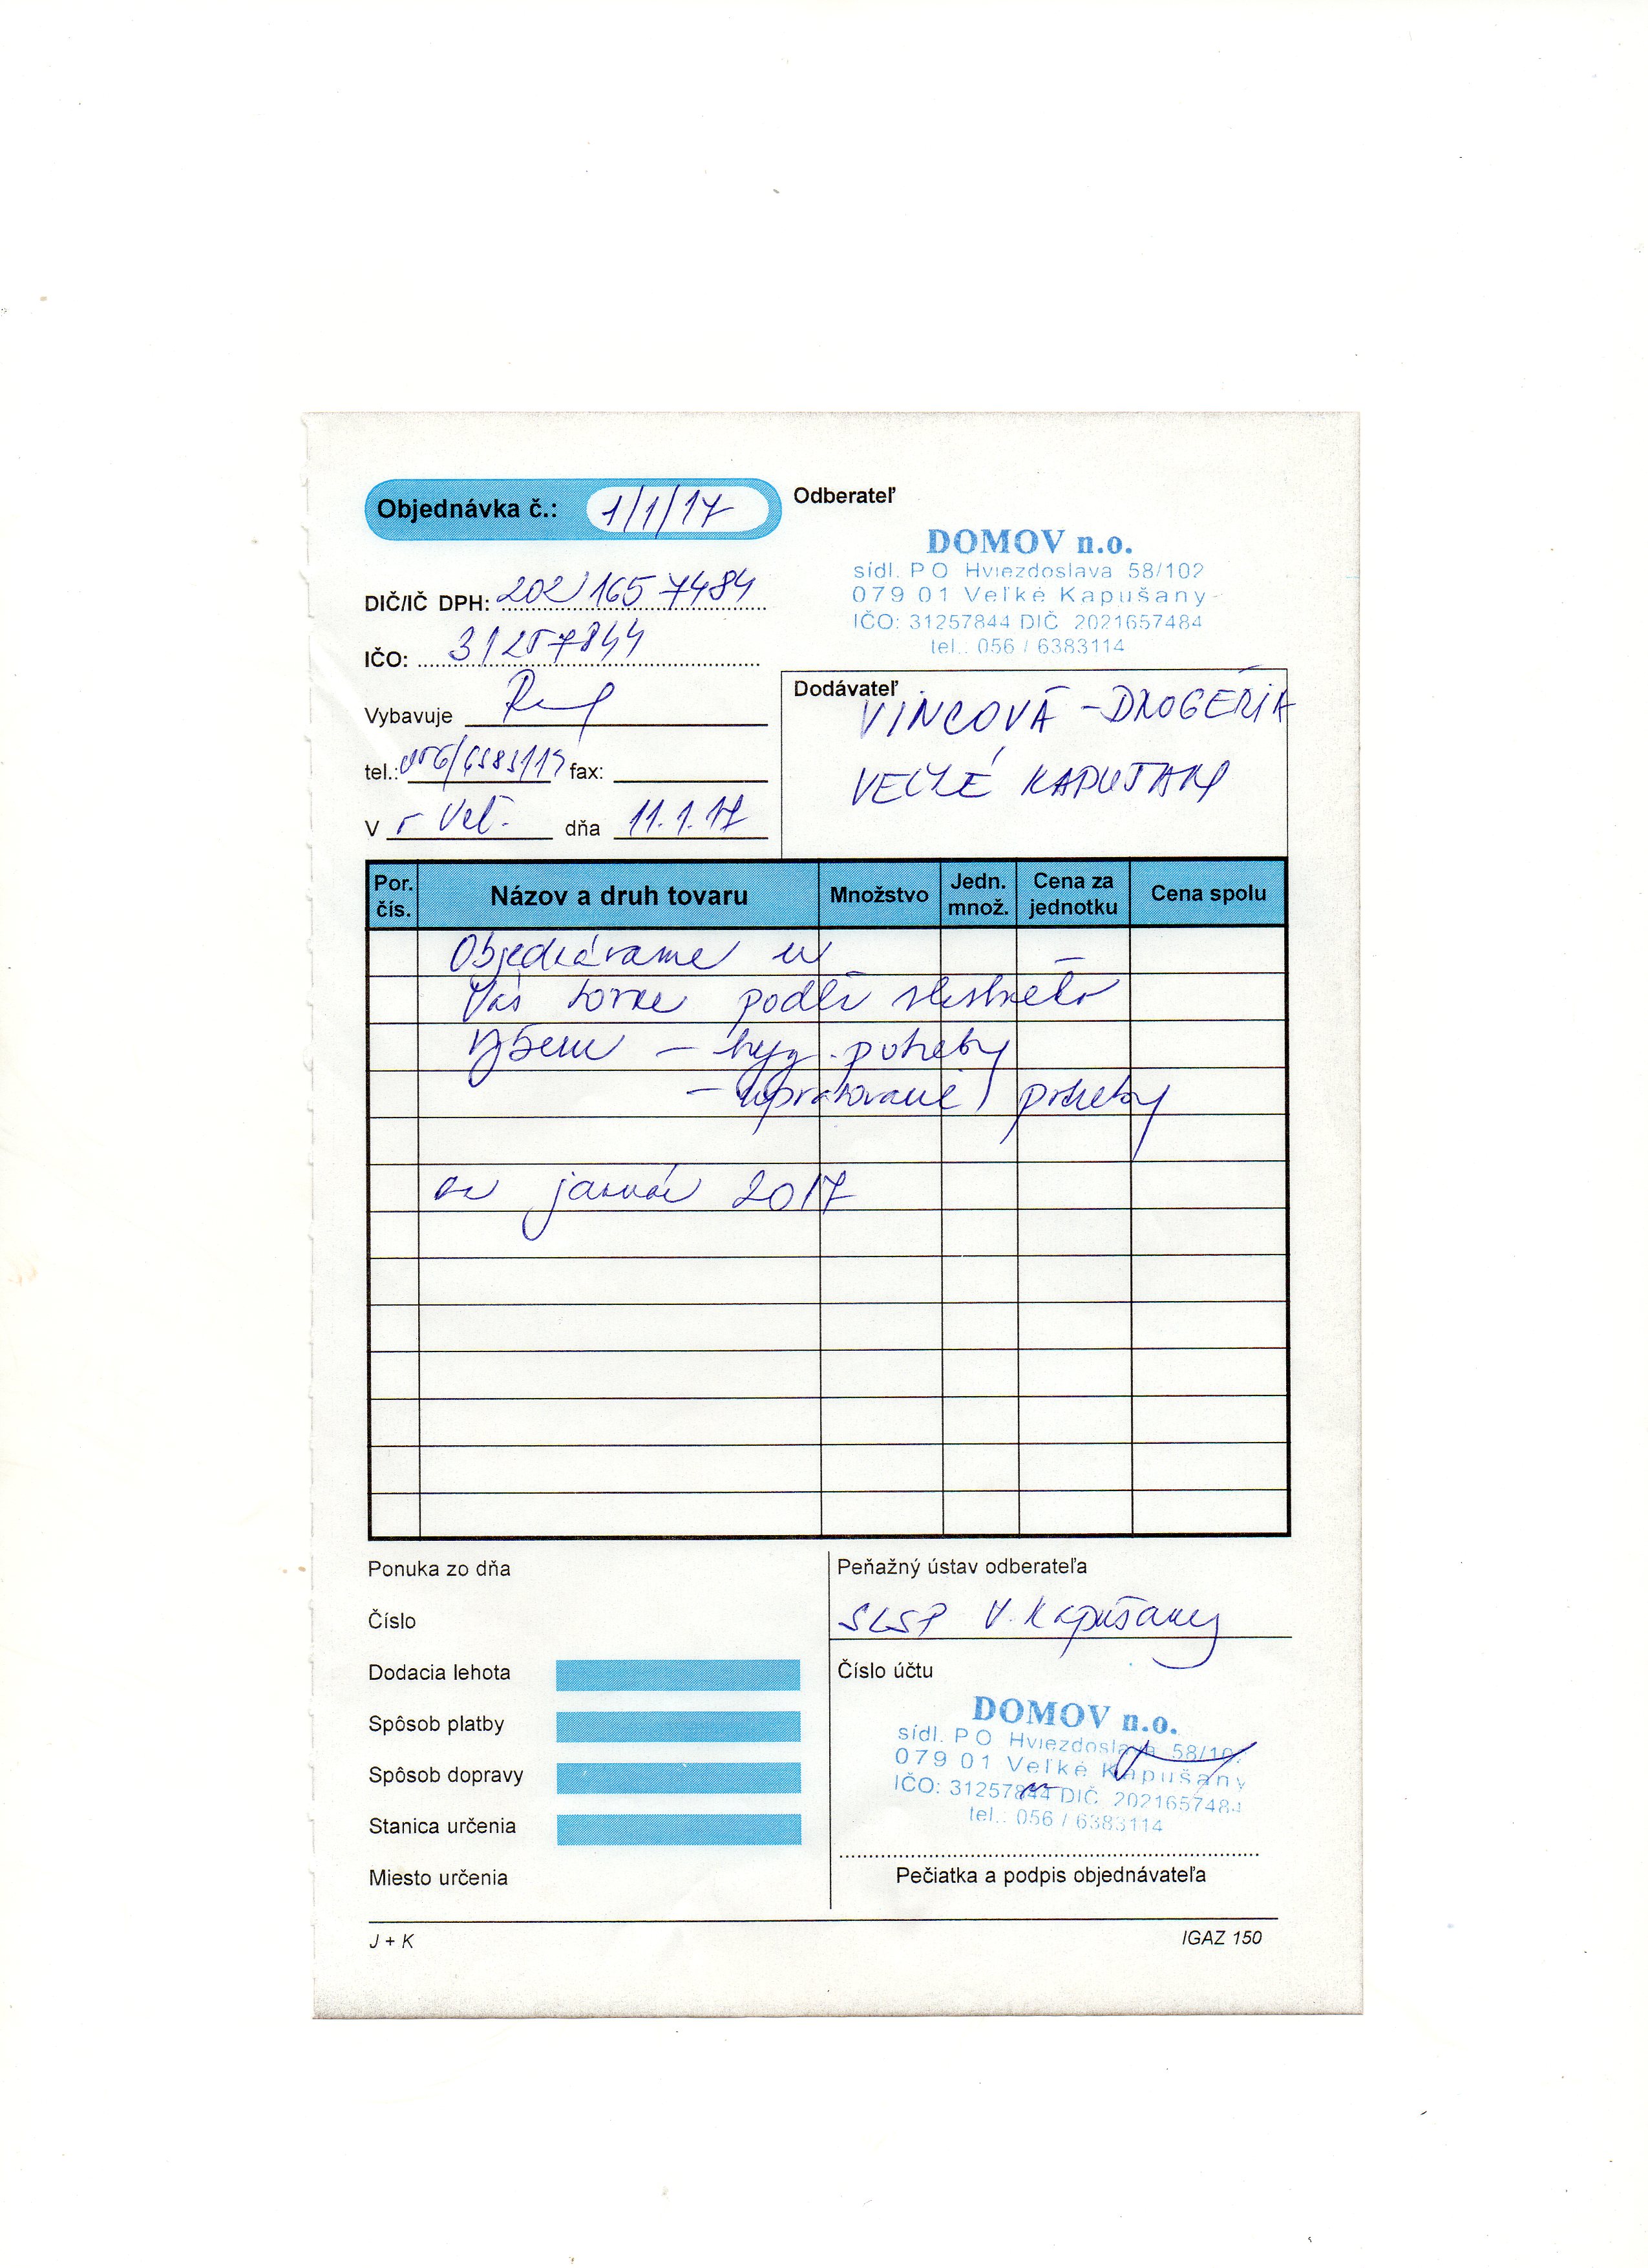 Objednávka č.: 1/1/17
Odberateľ
DOMOV n.o.
sídl. P O Hviezdoslava 58/102
079 01 Veľké Kapušany
IČO: 31257844 DIČ 2021657484
tel.: 056 / 6383114
DIČ/IČ DPH: 202 165 7484
IČO: 31257844
Vybavuje
tel.: 056/6383114 fax:
V Veľ. dňa 11.1.17
Dodávateľ
VINCOVÁ - DROGÉRIA
VEĽKÉ KAPUŠANY
Por. čís. Názov a druh tovaru Množstvo Jedn. množ. Cena za jednotku Cena spolu
Objednávame u
Vás podľa
- hyg. potreby
- upratovacie potreby
január 2017
Ponuka zo dňa
Číslo
Dodacia lehota
Spôsob platby
Spôsob dopravy
Stanica určenia
Miesto určenia
Peňažný ústav odberateľa
SLSP V. Kapušany
Číslo účtu
DOMOV n.o.
sídl. P O Hviezdoslava 58/102
079 01 Veľké Kapušany
IČO: 31257844 DIČ 2021657484
tel.: 056 / 6383114
Pečiatka a podpis objednávateľa
J + K
IGAZ 150